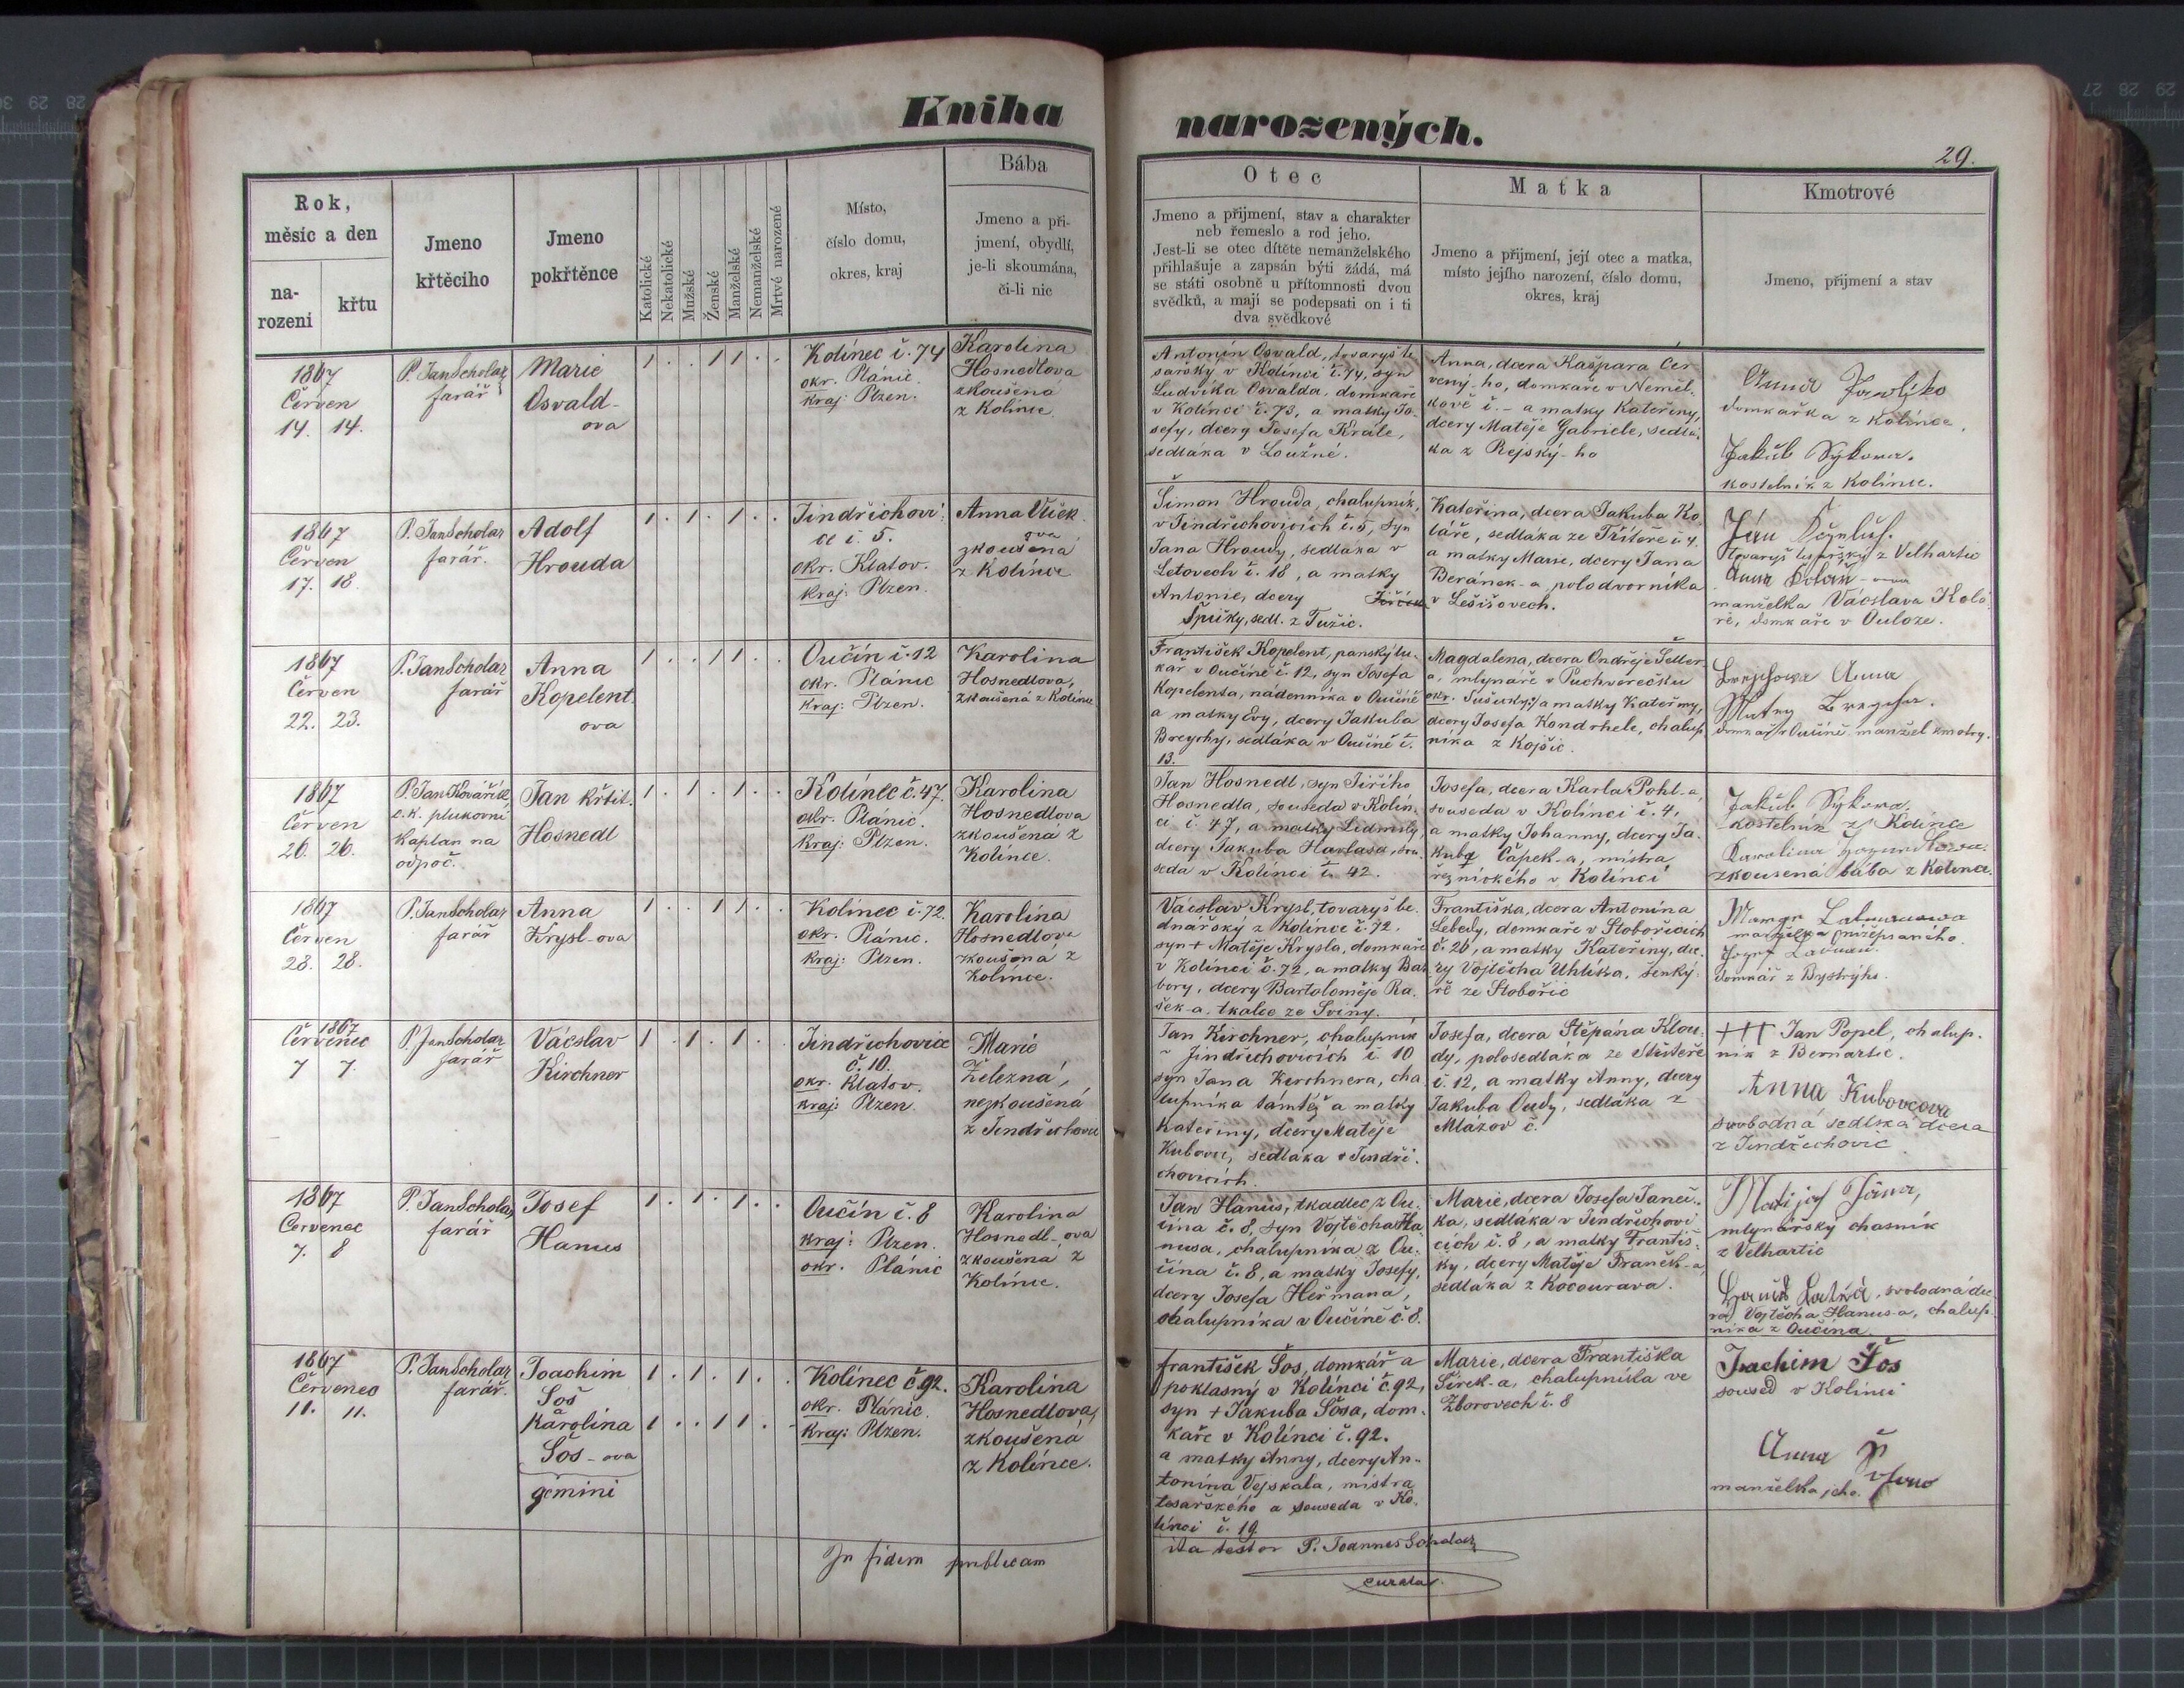 Kniha
narozených.
29.
Rok,
měsíc a den
na-
rozeni
křtu
Jmeno
křtěciho
Jmeno
pokřtěnce
Katolické
Nekatolické
Mužské
Ženské
Manželské
Nemanželské
Mrtvé narozené
Místo,
číslo domu,
okres, kraj
Bába
Jmeno a při-
jmení, obydlí,
je-li skoumána,
či-li nic
Otec
Jmeno a přijmení, stav a charakter
neb řemeslo a rod jeho.
Jest-li se otec dítěte nemanželského
přihlašuje a zapsán býti žádá, má
se státi osobně u přítomnosti dvou
svědků, a mají se podepsati on i ti
dva svědkové
Matka
Jmeno a přijmení, její otec a matka,
místo jejího narození, číslo domu,
okres, kraj
Kmotrové
Jmeno, přijmení a stav
1867
Červen
14. 14.
P. Jan Scholar
farář
Marie
Osvald-
ova
1 . . 1 1 . .
Kolínec č. 74
okr. Plánic.
kraj: Plzen.
Karolina
Hosnedlova
zkoušená
z Kolince
Antonín Osvald, tovaryš te-
sařský v Kolinci č. 74, syn
Ludvíka Osvalda, domkaře
v Kolinci č. 73, a matky Jo-
sefy, dcery Josefa Krále,
sedláka v Loužné.
Anna, dcera Kašpara Čer
vený-ho, domkaře v Něměl-
kově č. - a matky Kateřiny,
dcery Matěje Gabriele, sedlá-
ka z Rejský-ho
Anna
domkařka z Kolince.
Jakub Sýkora.
kostelník z Kolince.
1867
Červen
17. 18.
P. Jan Scholar
farář.
Adolf
Hrouda
1 . 1 . 1 . .
Jindřichovi-
ce č. 5.
okr. Klatov.
kraj: Plzen.
Anna Vlček
ova
zkoušená
z Kolince
Šimon Hrouda, chalupník,
v Jindřichovicích č. 5, syn
Jana Hroudy, sedláka v
Letovech č. 18, a matky
Antonie, dcery
Špičky, sedl. z Tužic.
Kateřina, dcera Jakuba Ko-
láře, sedláka ze Třitěře č. 4.
a matky Marie, dcery Jana
Beránek-a polodvorníka
v Lešišovech.
Jan
tovaryš z Velhartic
Anna Kolář-ova
manželka Vácslava Kolá-
ře, domkaře v Ouloze.
1867
Červen
22. 23.
P. Jan Scholar
farář
Anna
Kopelent.
ova
1 . . 1 1 . .
Oučín č. 12
okr. Plánic
kraj: Plzen.
Karolina
Hosnedlova,
zkoušená z Kolince
František Kopelent, panský lu-
kař v Oučíně č. 12, syn Josefa
Kopelenta, nádenníka v Oučíně
a matky Evy, dcery Jakuba
Breychy, sedláka v Oučíně č.
13.
Magdalena, dcera Ondřeje Šetler-
a, mlynáře v Puchverečku
okr. Sušický a matky Kateřiny,
dcery Josefa Kondrhele, chalup-
níka z Kojšic.
Anna
domkař v Oučíně manžel kmotry.
1867
Červen
26. 26.
P. Jan Kovářík,
c. k. plukovní
kaplan na
odpoč.
Jan křtit.
Hosnedl
1 . 1 . 1 . .
Kolínec č. 47.
okr. Planic.
kraj: Plzen.
Karolina
Hosnedlova
zkoušená z
Kolince.
Jan Hosnedl, syn Jiřího
Hosnedla, souseda v Kolín-
ci č. 47, a matky Lidmily
dcery Jakuba Havlasa, sou-
seda v Kolínci č. 42.
Josefa, dcera Karla Pohl-a,
souseda v Kolínci č. 4,
a matky Johanny, dcery Ja-
kuba Čápek-a, mistra
řeznického v Kolínci
Jakub Sýkora,
kostelník z Kolince
Karolina
zkoušená bába z Kolince.
1867
Červen
28. 28.
P. Jan Scholar
farář
Anna
Krysl-ova
1 . . 1 1 . .
Kolinec č. 72.
okr. Plánic.
kraj: Plzen.
Karolina
Hosnedlova
zkoušená z
Kolince.
Vácslav Krysl, tovaryš be-
dnářský z Kolince č. 72.
syn + Matěje Krysla, domkaře
v Kolínci č. 72, a matky Bar-
bory, dcery Bartoloměje Ra-
šek-a, tkalce ze Sviny.
Františka, dcera Antonína
Lebedy, domkaře v Stobořicích
č. 26, a matky Kateřiny, dce-
ry Vojtěcha Uhlíka, šenký-
ře ze Stobořic
manželka nížepsaného.
domkář z Bystrýho.
1867
Červenec
7 7.
P. Jan Scholar
farář
Vácslav
Kirchner
1 . 1 . 1 . .
Jindřichovice
č. 10.
okr. Klatov.
kraj: Plzen
Marie
Železná,
nezkoušená
z Jindřichovic
Jan Kirchner, chalupník
v Jindřichovicích č. 10
syn Jana Kirchnera, cha
lupníka tamtéž a matky
Kateřiny, dcery Matěje
Kubovce, sedláka v Jindři-
chovicích.
Josefa, dcera Štěpána Klou-
dy, polosedláka ze Střiteře
č. 12, a matky Anny, dcery
Jakuba Oudy, sedláka z
Mlazov č.
+++ Jan Popel, chalup-
ník z Bernartic.
Anna Kubovcova
svobodná sedlská dcera
z Jindřichovic
1867
Červenec
7. 8
P. Jan Scholar
farář
Josef
Hanus
1 . 1 . 1 . .
Oučín č. 8
kraj: Plzen.
okr. Plánic
Karolina
Hosnedl-ova
zkoušená z
Kolince.
Jan Hanus, tkadlec z Ou-
čína č. 8, syn Vojtěcha Ha
nusa, chalupníka z Ou-
čína č. 8, a matky Josefy,
dcery Josefa Heřmana,
chalupníka v Oučíně č. 8.
Marie, dcera Josefa Janeč-
ka, sedláka v Jindřichovi
cích č. 8, a matky Františ-
ky, dcery Matěje Franěk-a,
sedláka z Kocourava.
mlynářský chasník
z Velhartic
svobodná dce-
ra Vojtěcha Hanus-a, chalup-
níka z Oučína
1867
Červenec
11. 11.
P. Jan Scholar
farář.
Joachim
Šos
a
Karolina
Šos-ova
gemini
1 . 1 . 1 . .
1 . . 1 1 . .
Kolínec č. 92.
okr. Plánic.
kraj: Plzen.
Karolina
Hosnedlova,
zkoušená
z Kolínce.
František Šos, domkář a
poklasný v Kolínci č. 92,
syn + Jakuba Šosa, dom-
kaře v Kolínci č. 92.
a matky Anny, dcery An-
tonína Vejskala, mistra
tesařského a souseda v Ko-
línci č. 19
Marie, dcera Františka
Šírek-a, chalupníka ve
Zborovech č. 8
Joachim Šos
soused v Kolinci
Anna
manželka jeho.
In fidem publicam
ita testor P. Joannes Scholar
curatus.